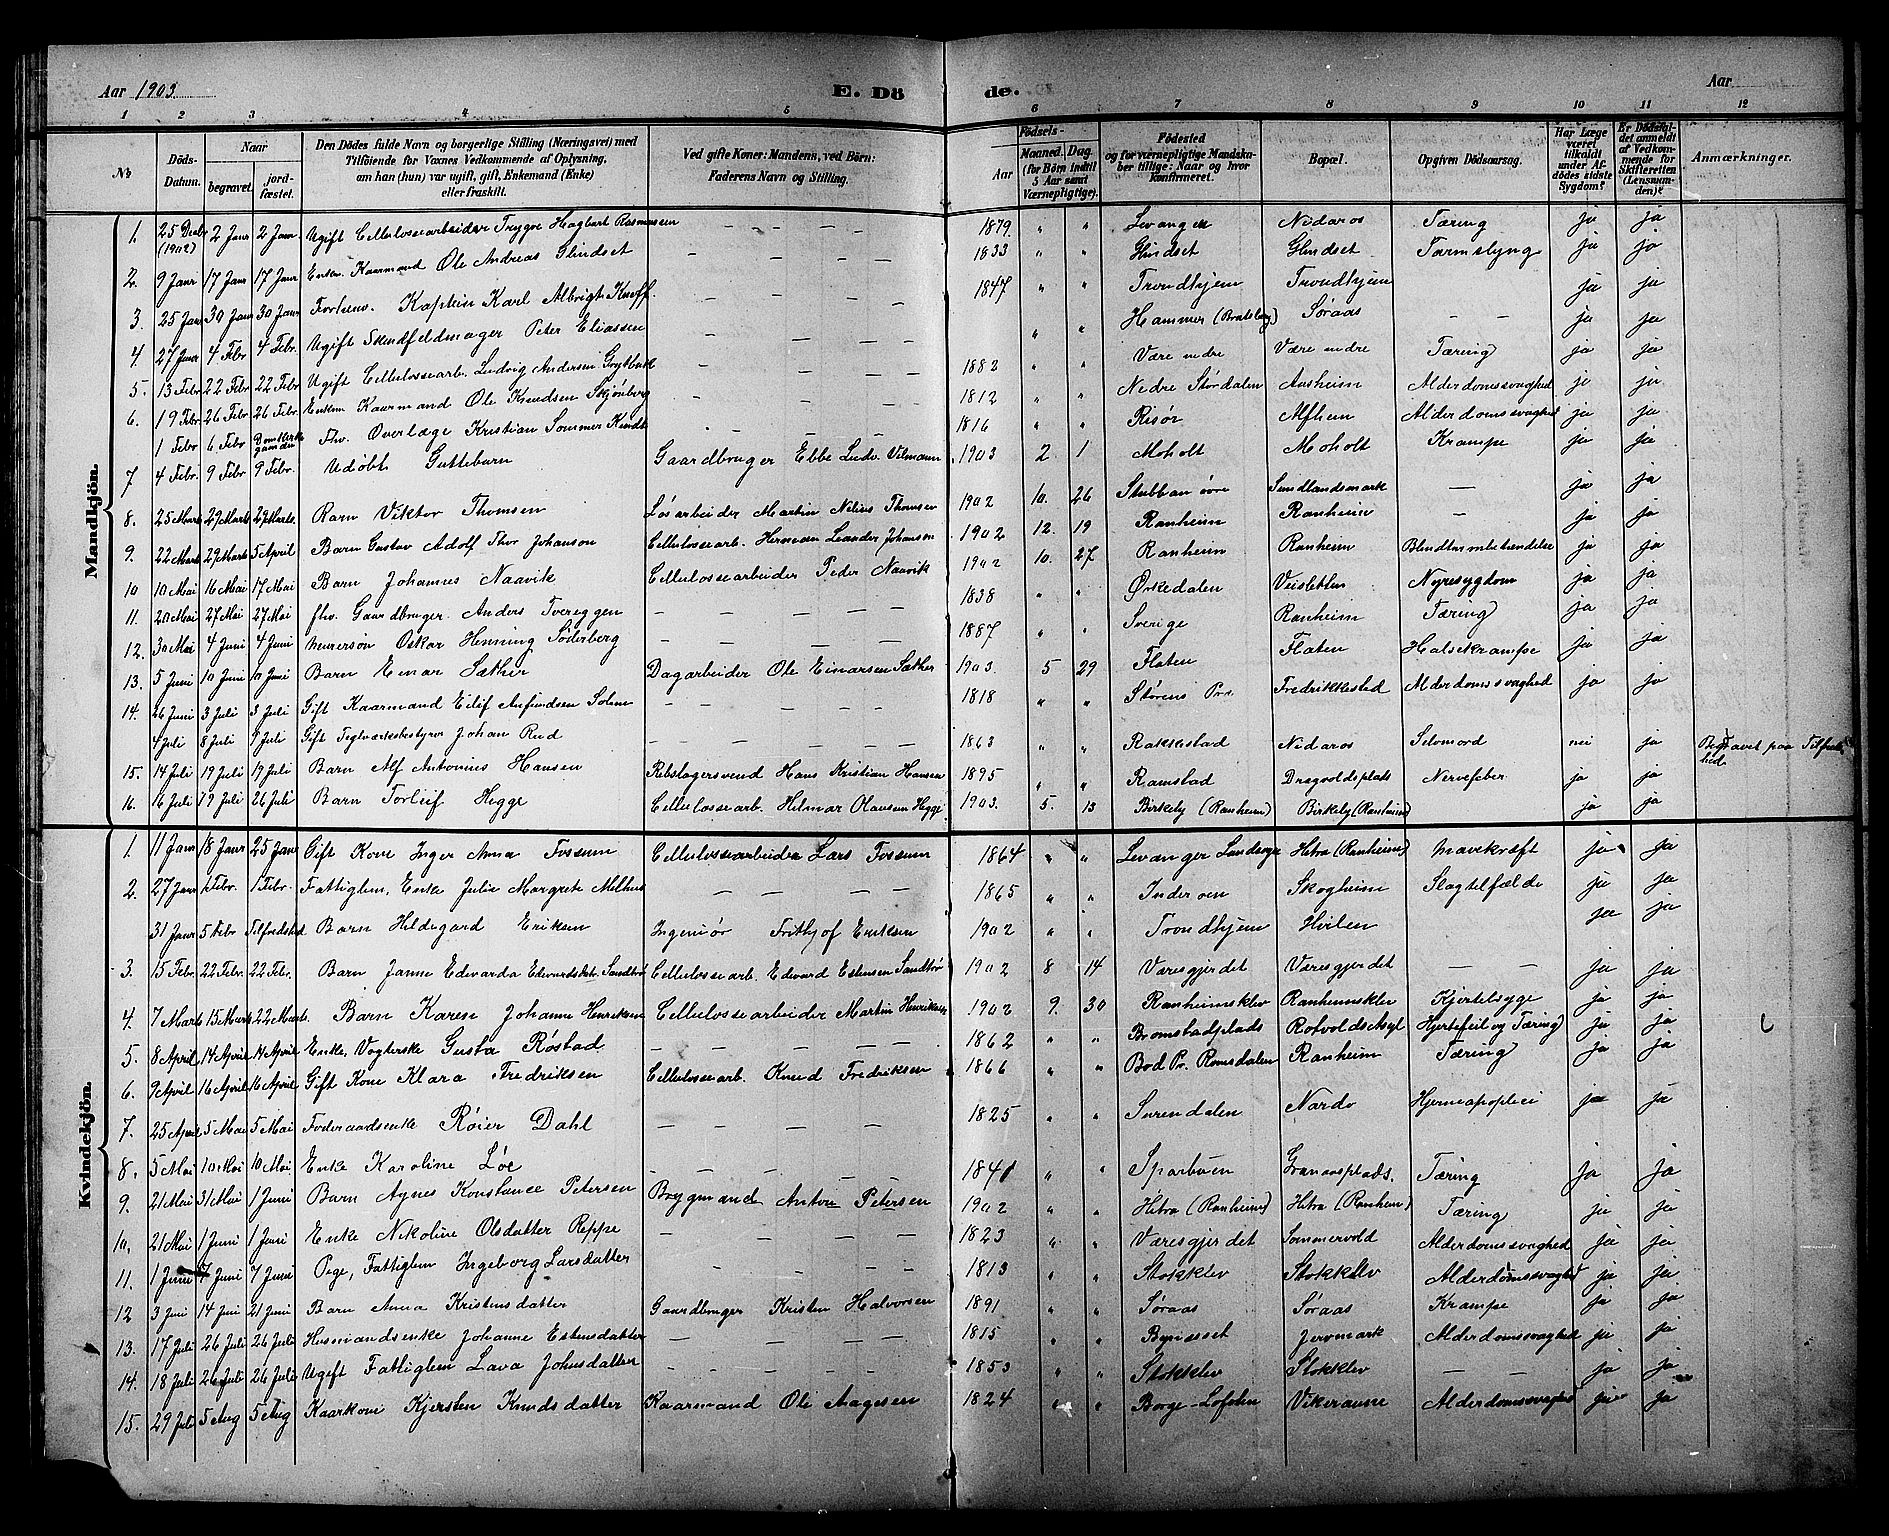 Aar 1903. E. Dö de. Aar
1 2 3 4 5 6 7 8 9 10 11 12
No | Döds-Datum. | Naar begravet. | Naar jordfæstet. | Den Dödes fulde Navn og borgerlige Stilling (Næringsvei) med Tilföiende for Voxnes Vedkommende af Oplysning, om han (hun) var ugift, gift, Enkemand (Enke) eller fraskilt. | Ved gifte Koner: Mandens, ved Börn: Faderens Navn og Stilling. | Födsels- Aar | Maaned. Dag. (for Börn indtil 5 Aar samt Værnepligtige). | Födested og for værnepligtige Mandskaber tillige: Naar og hvor konfirmeret. | Bopæl. | Opgiven Dödsaarsag. | Har Læge været tilkaldt under Afdödes sidste Sygdom? | Er Dödsfaldet anmeldt af Vedkommende for Skifteretten (Lensmanden)? | Anmærkninger.
Mandkjön.
1. 25 Decbr (1902) 2 Janr 2 Janr Ugift Cellulossearbeider Trygve Hagbart Rasmussen — — — — 1879. " " Levanger Nidaros Tæring ja ja
2. 9 Janr 17 Janr 17 Janr Enkem. Kaarmand Ole Andreas Glindset — — — — 1833 " " Glindset Glindset Tarmslyng ja ja
3. 25 Janr 30 Janr 30 Janr Forhenv. Kaptein Karl Albrigt Knoff. — — — — 1847 " " Trondhjem Trondhjem ja ja
4. 27 Janr 4 Febr 4 Febr. Ugift Skindfeldmager Peter Eliassen — — — — " " Hammer (Bratsberg) Søraas — — ja ja
5. 13 Febr 22 Febr 22 Febr Ugift Cellulossearb. Ludvig Andersen Grytbak — — — — 1882 " " Være nedre Være nedre Tæring ja ja
6. 19 Febr 26 Febr 26 Febr. Enkem Kaarmand Ole Knudsen Skjønberg — — — — 1812 " " Nedre Størdalen Aasheim Alderdomssvaghed ja ja
1 Febr 6 Febr Fhv. Overlæge Kristian Sommer Kindt — — — 1816 " " Risør Alfheim Alderdomssvaghed ja ja
7 4 Febr. 9 Febr. 9 Febr. Udøbt Guttebarn Gaardbruger Ebbe Ludv. Vilmann 1903 2 1 Moholt Moholt Krampe ja ja
8. 25 Marts 29 Marts 29 Marts. Barn Viktor Thomsen Løsarbeider Martin Nelius Thomsen 1902 10. 26 Stubban øvre Sundlandsmark — ja ja
9. 22 Marts 29 Marts 5 April Barn Gustav Adolf Thor Johanson Cellulossearb. Herman Leander Johanson 1902 12. 19 Ranheim Ranheim — ja ja
10 10 Mai 16 Mai 17 Mai Barn Johannes Naavik Cellulossearbeider Peder Naavik 1902 10. 27 Ranheim Ranheim Blindtarmbetændelse ja ja
11. 20 Mai 27 Mai 27 Mai fhv. Gaardbruger. Anders Tvereggen — — — — 1838 " " Ørkedalen Veisletten Nyresygdom ja ja
12. 30 Mai 4 Juni 4 Juni Murersøn Oskar Henning Søderberg — — — — 1887 " " Sverige Ranheim Tæring ja ja
13. 5 Juni 10 Juni 10 Juni Barn Einar Sæther Dagarbeider Ole Einarsen Sæther 1903. 5 29 Flaten Flaten Halsekrampe ja ja
14. 26 Juni 3 Juli 3 Juli Gift Kaarmand Eilif Anfindsen Solem — — — — 1818 " " Størens Pr. Fredrikkestad Alderdomssvaghed ja ja
4 Juli 8 Juli 9 Juli Gift Teglværksbestyrer Johan Rud — — — — 1863 " " Rakkestad Nidaros Selvmord nei ja Begravet paa Tilfredshed
15. 14 Juli 19 Juli 19 Juli Barn Alf Antonius Hansen Rebslagersvend Hans Kristian Hansen 1895 " " Ramstad Dragvoldsplads Nervefeber ja ja
16. 16 Juli 19 Juli 26 Juli Barn Torleif Hegge Cellulossearb. Hilmar Olausen Hegge 1903. 5. 13 Birkely (Ranheim) Birkely (Ranheim) ja ja
Kvindekjön.
1. 11 Janr 18 Janr 25 Janr Gift Kone Inger Anna Fossum Cellulossearbeider Lars Fossum 1864 " " Levanger Landsogn Hitra (Ranheim) Mavekræft ja ja
2. 27 Janr 1 Febr. 1 Febr. Fattiglem, Enke Julie Margrete Melhus — — — — 1865 " " Inderøen Skogheim Slagtilfælde ja ja
31 Janr 5 Febr Tilfredshed Barn Hildegard Eriksen Ingeniør Frithjof Eriksen 1902 " " Trondhjem Hvilen ja ja
3. 15 Febr. 22 Febr. 22 Febr. Barn Janne Edvarda Edvardsdatr. Sandbrø Cellulossearb. Edvard Estensen Sandbrø 1902 8 14 Væresgjerdet Væresgjerdet — — ja ja
4. 7 Marts 15 Marts 22 Marts. Barn Karen Johanne Henriksen Cellulossearbeider Martin Henriksen 1902 9. 30 Ranheimsklev Ranheimsklev Kjertelsyge ja ja
5. 8 April 14 April 14 April Enke, Vogterske Gusta Røstad — — — — 1862 " " Bromstadplads Rotvoldsasyl Hjertefeil og Tæring ja ja
6. 9 April 16 April 16 April Gift Kone Klara Fredriksen Cellulossearb. Knud Fredriksen 1866 " " Bod Pr. Romsdalen Ranheim Tæring ja ja
7. 25 April 5 Mai 5 Mai Føderaadsenke Røier Dahl — — — — 1825 " " Surendalen Nardo Hjerneapoplexi ja ja
8. 5 Mai 10 Mai 10 Mai Enke Karoline Løe — — — — 1841 " " Sparbuen Granaasplads. Tæring ja ja
9. 21 Mai 31 Mai 1 Juni Barn Agnes Konstance Petersen Brygmand Anton Petersen 1902 " " Hitra (Ranheim) Hitra (Ranheim) Tæring ja ja
10. 21 Mai 1 Juni 1 Juni Enke Nikoline Olsdatter Reppe — — — — 1823 " " Væresgjerdet Sommervold Alderdomssvaghed ja ja
11. 1 Juni 7 Juni 7 Juni Pige, Fattiglem Ingeborg Larsdatter — — — — 1813 " " Stokklev Stokklev Alderdomssvaghed ja ja
12 3 Juni 14 Juni 21 Juni Barn Anna Kristensdatter Gaardbruger Kristen Halvorsen 1891 " " Søraas Søraas Krampe ja ja
13. 17 Juli 26 Juli 26 Juli Husmandsenke Johanne Estensdatter — — — — 1815 " " Bynesset Jervmark Alderdomssvaghed ja ja
14. 18 Juli 26 Juli 26 Juli Ugift Fattiglem Lava Johnsdatter — — — — 1853 " " Stokklev Stokklev — — ja ja
15. 29 Juli 5 Aug 5 Aug Kaarkone Kjersten Knudsdatter Kaarmand Ole Aagesen 1824 " " Borge-Lofoten Vikeraune Alderdomssvaghed ja ja